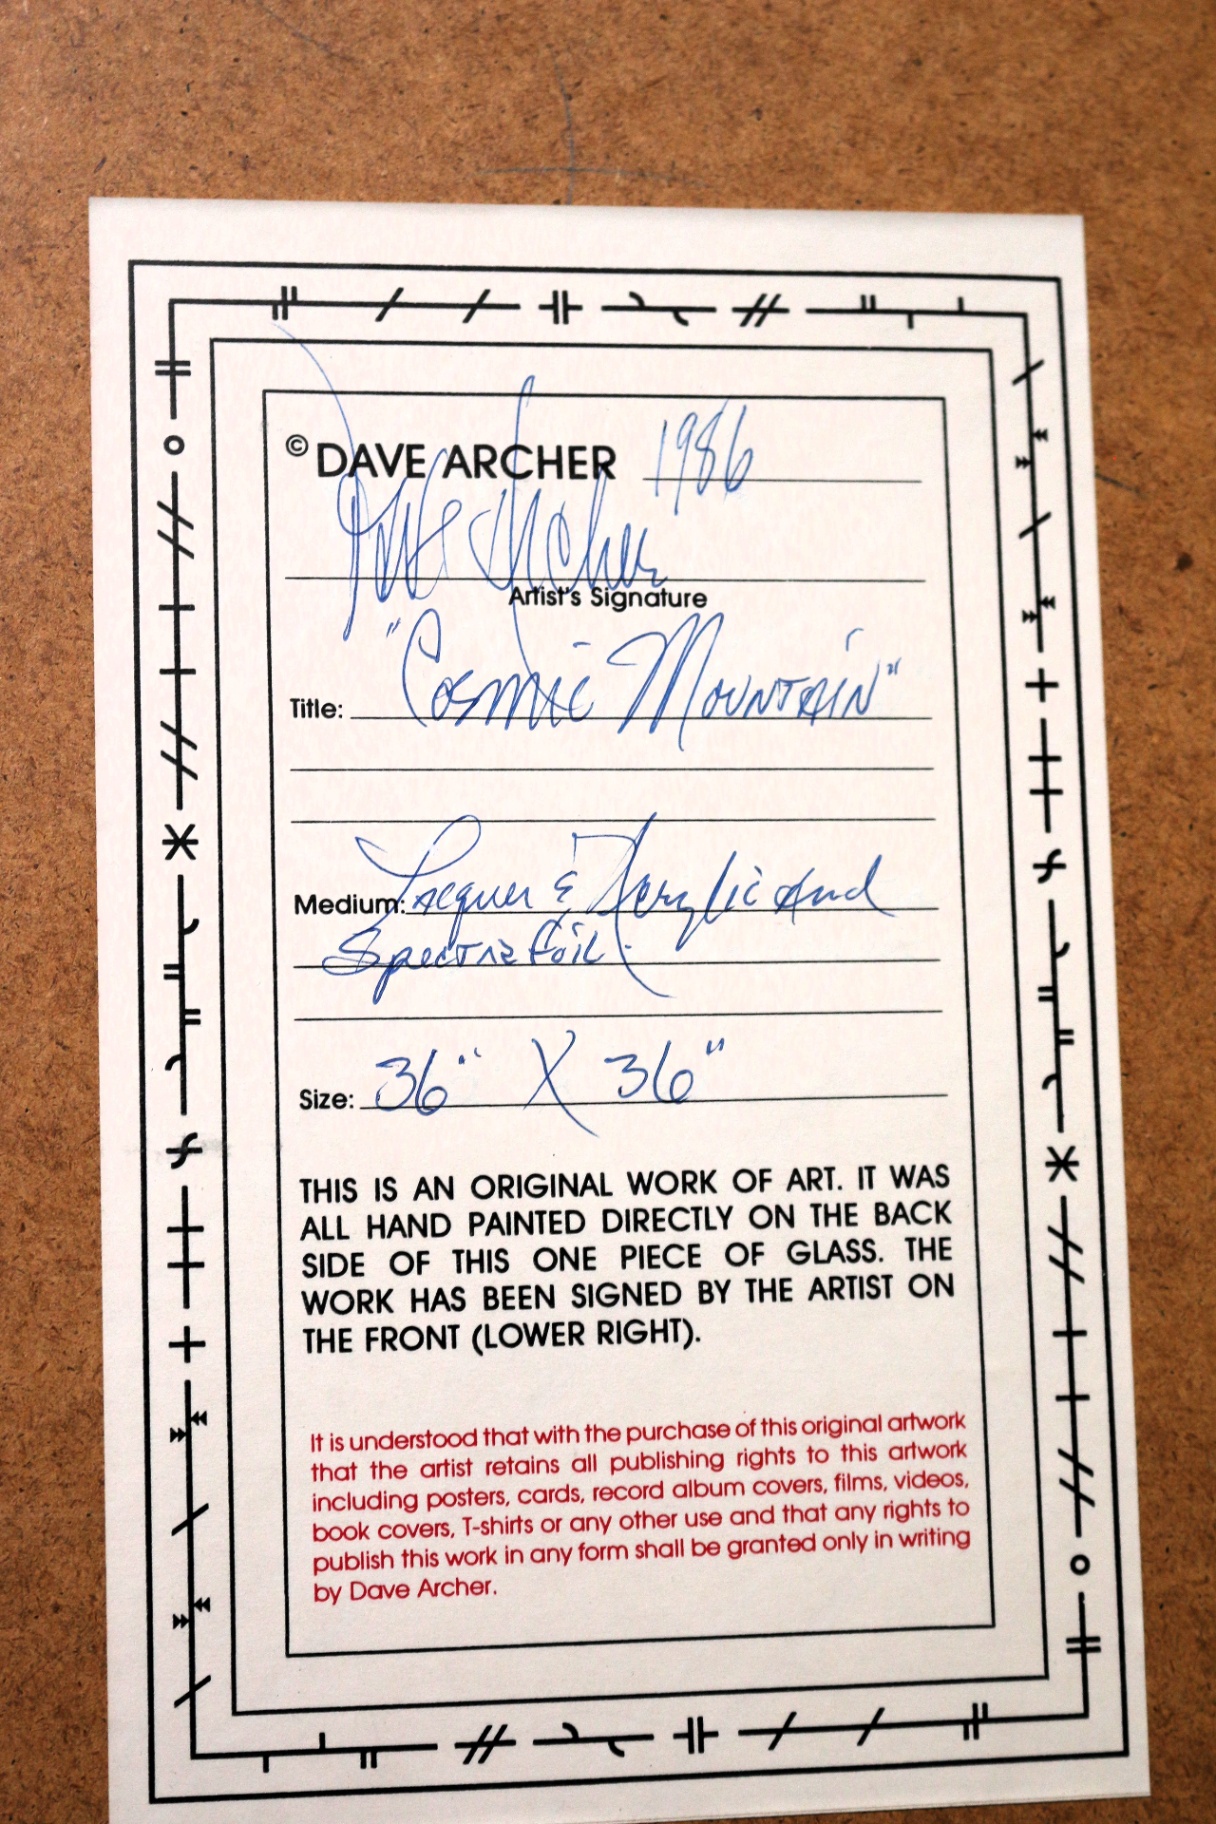 © DAVE ARCHER 1986
Dave Archer
Artist's Signature
Title: "Cosmic Mountain"
Medium: Lacquer & Acrylic and
Spectra Foil.
Size: 36" X 36"
THIS IS AN ORIGINAL WORK OF ART. IT WAS
ALL HAND PAINTED DIRECTLY ON THE BACK
SIDE OF THIS ONE PIECE OF GLASS. THE
WORK HAS BEEN SIGNED BY THE ARTIST ON
THE FRONT (LOWER RIGHT).
It is understood that with the purchase of this original artwork
that the artist retains all publishing rights to this artwork
including posters, cards, record album covers, films, videos,
book covers, T-shirts or any other use and that any rights to
publish this work in any form shall be granted only in writing
by Dave Archer.